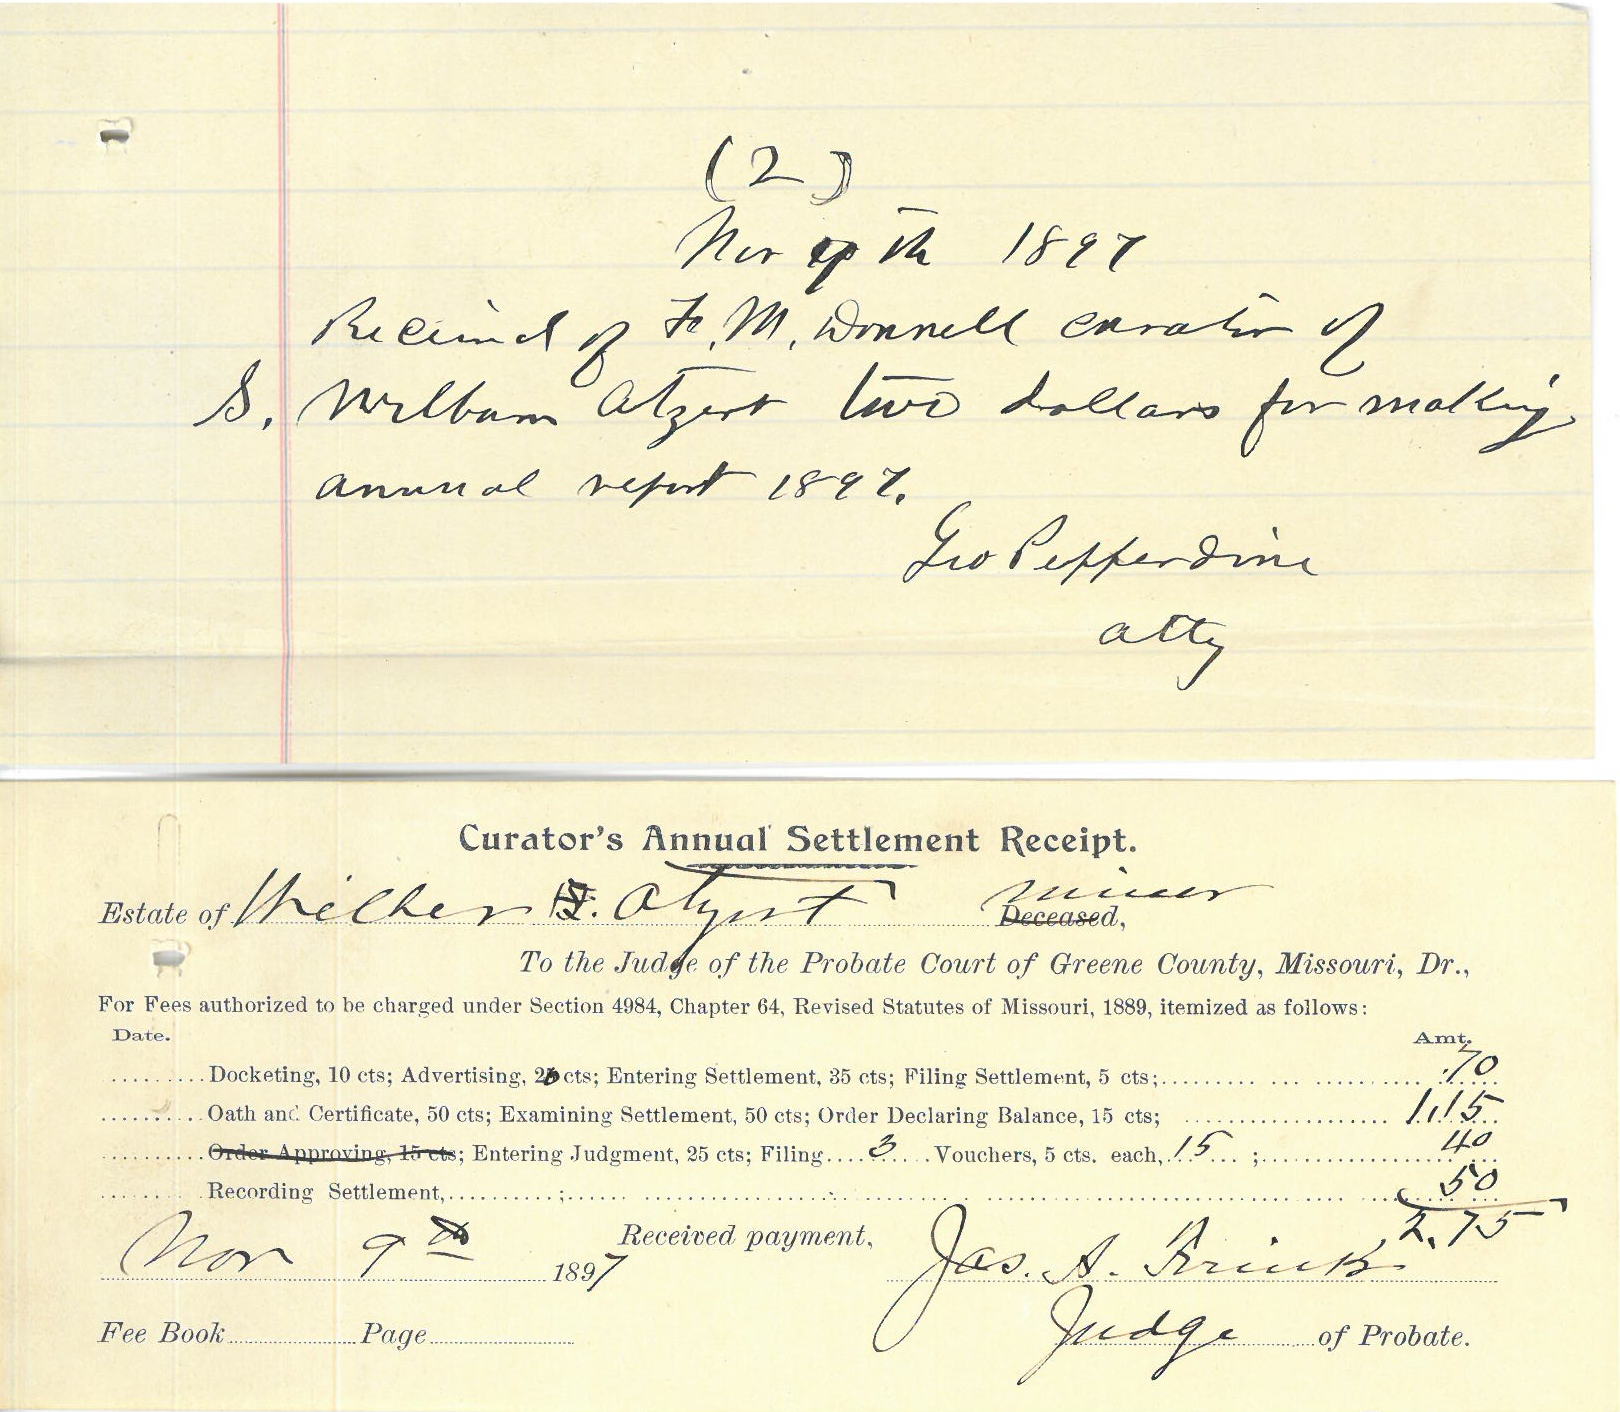 (2)
Nov 9th 1897
Received of F. M. Donnell curator of
S. Wilbur Atzert two dollars for making
annual report 1897.
Geo Pepperdine
atty
Curator's Annual Settlement Receipt.
Estate of Wilber S. Atzert Deceased, minor
To the Judge of the Probate Court of Greene County, Missouri, Dr.,
For Fees authorized to be charged under Section 4984, Chapter 64, Revised Statutes of Missouri, 1889, itemized as follows:
Date. Amt.
Docketing, 10 cts; Advertising, 20 cts; Entering Settlement, 35 cts; Filing Settlement, 5 cts; .70
Oath and Certificate, 50 cts; Examining Settlement, 50 cts; Order Declaring Balance, 15 cts; 1.15
Order Approving, 15 cts; Entering Judgment, 25 cts; Filing 3 Vouchers, 5 cts. each, 15 ; 40
Recording Settlement, ; 50
2.75
Nov 9th 1897 Received payment, Jas. A. Frink
Judge of Probate.
Fee Book Page